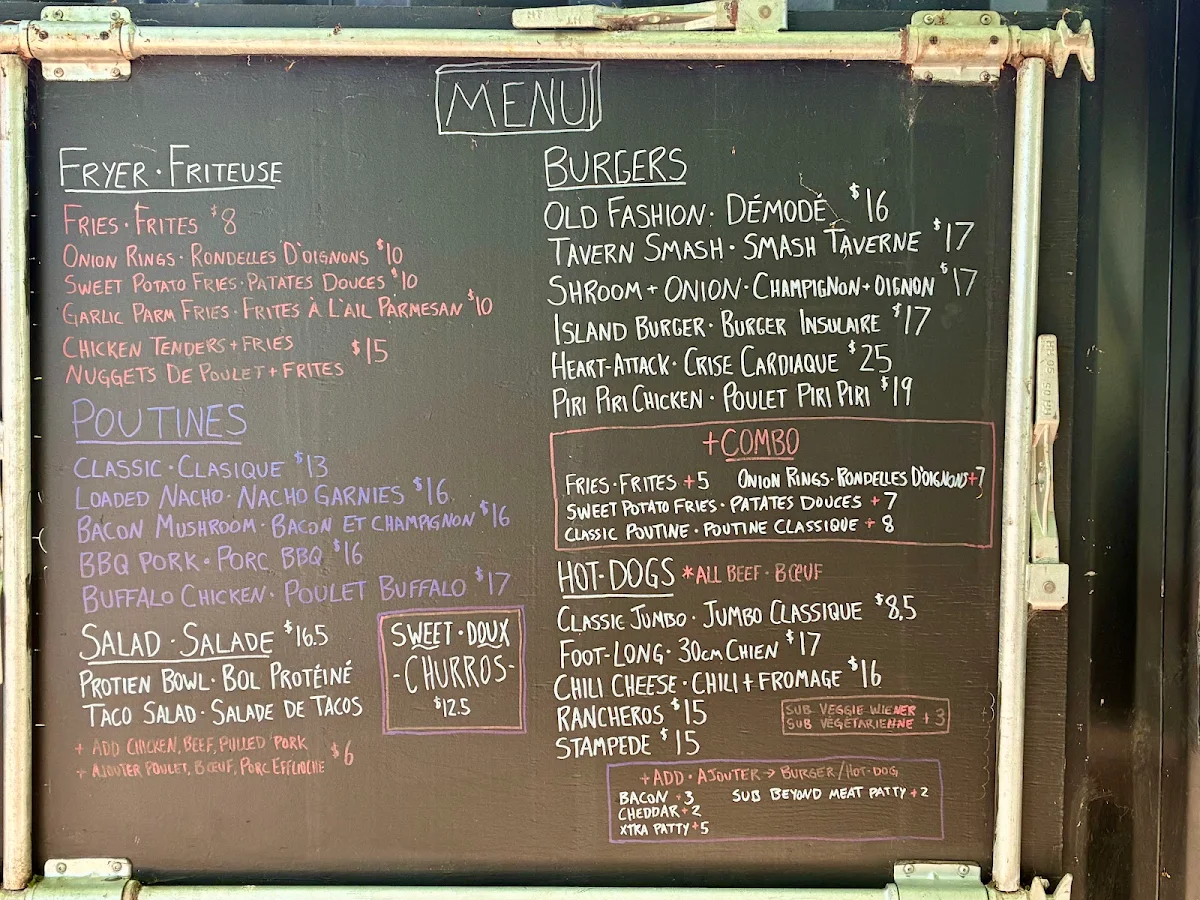 MENU
FRYER · FRITEUSE
FRIES · FRITES $8
ONION RINGS · RONDELLES D'OIGNONS $10
SWEET POTATO FRIES · PATATES DOUCES $10
GARLIC PARM FRIES · FRITES À L'AIL PARMESAN $10
CHICKEN TENDERS + FRIES $15
NUGGETS DE POULET + FRITES
POUTINES
CLASSIC · CLASIQUE $13
LOADED NACHO · NACHO GARNIES $16
BACON MUSHROOM · BACON ET CHAMPIGNON $16
BBQ PORK · PORC BBQ $16
BUFFALO CHICKEN · POULET BUFFALO $17
SALAD · SALADE $16.5
PROTIEN BOWL · BOL PROTÉINÉ
TACO SALAD · SALADE DE TACOS
+ ADD CHICKEN, BEEF, PULLED PORK $6
+ AJOUTER POULET, BŒUF, PORC EFFLIOCHE
SWEET · DOUX
-CHURROS-
$12.5
BURGERS
OLD FASHION · DÉMODÉ $16
TAVERN SMASH · SMASH TAVERNE $17
SHROOM + ONION · CHAMPIGNON + OIGNON $17
ISLAND BURGER · BURGER INSULAIRE $17
HEART-ATTACK · CRISE CARDIAQUE $25
PIRI PIRI CHICKEN · POULET PIRI PIRI $19
+COMBO
FRIES · FRITES +5 ONION RINGS · RONDELLES D'OIGNONS +7
SWEET POTATO FRIES · PATATES DOUCES +7
CLASSIC POUTINE · POUTINE CLASSIQUE + 8
HOT-DOGS *ALL BEEF · BŒUF
CLASSIC JUMBO · JUMBO CLASSIQUE $8,5
FOOT-LONG · 30cm CHIEN $17
CHILI CHEESE · CHILI + FROMAGE $16
RANCHEROS $15
STAMPEDE $15
SUB VEGGIE WIENER + 3
SUB VÉGÉTARIENNE
+ADD · AJOUTER → BURGER/HOT-DOG
BACON +3 SUB BEYOND MEAT PATTY +2
CHEDDAR +2
XTRA PATTY +5